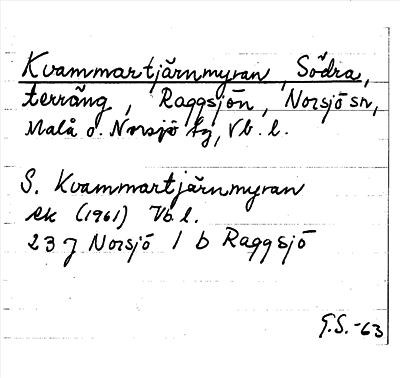 Kvammartjärnmyran, Södra,
terräng, Raggsjön, Norsjö sn,
Malå o. Norsjö tg, Vb. l.
S. Kvammartjärnmyran
ek (1961) Vb l.
23 J Norsjö 1 b Raggsjö
G.S. -63